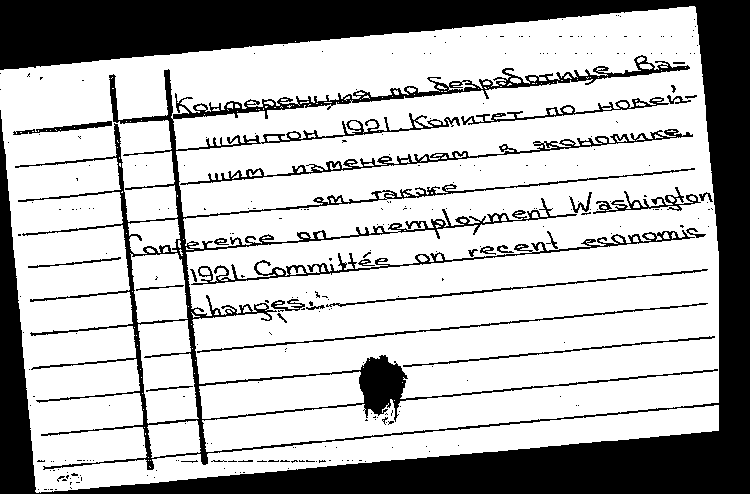 Конференция по безработице. Ва-
шингтон 1921. Комитет по новей-
шим изменениям в экономике.
см. также
Conference on unemployment Washington
1921. Committée on recent economic
changes.